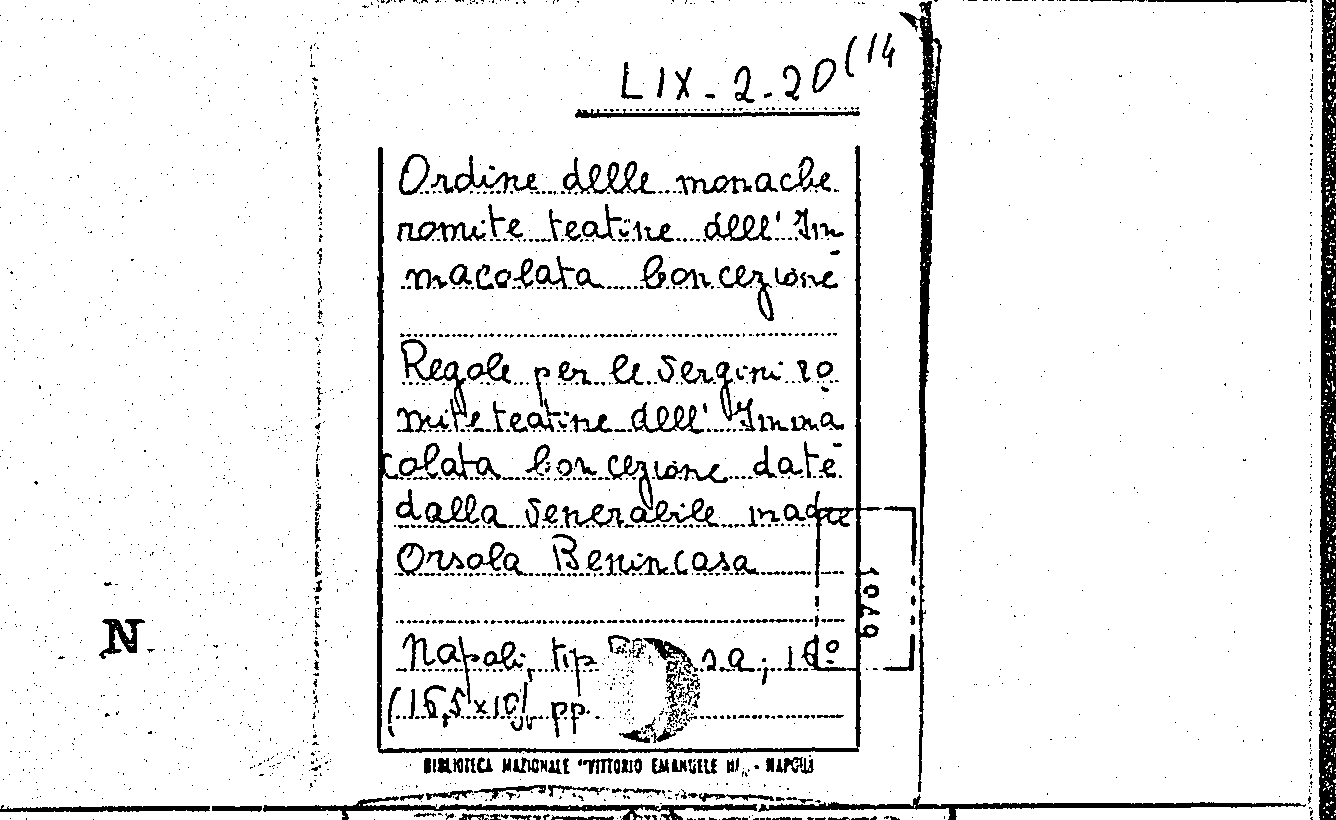 LIX-2-20(14
Ordine delle monache
romite teatine dell' Im
macolata Concezione
Regole per le Vergini ro
mite teatine dell' Imma
colata Concezione date
dalla Venerabile madre
Orsola Benincasa
N
Napoli, tip
(16,5x10), pp.
BIBLIOTECA NAZIONALE "VITTORIO EMANUELE III" - NAPOLI